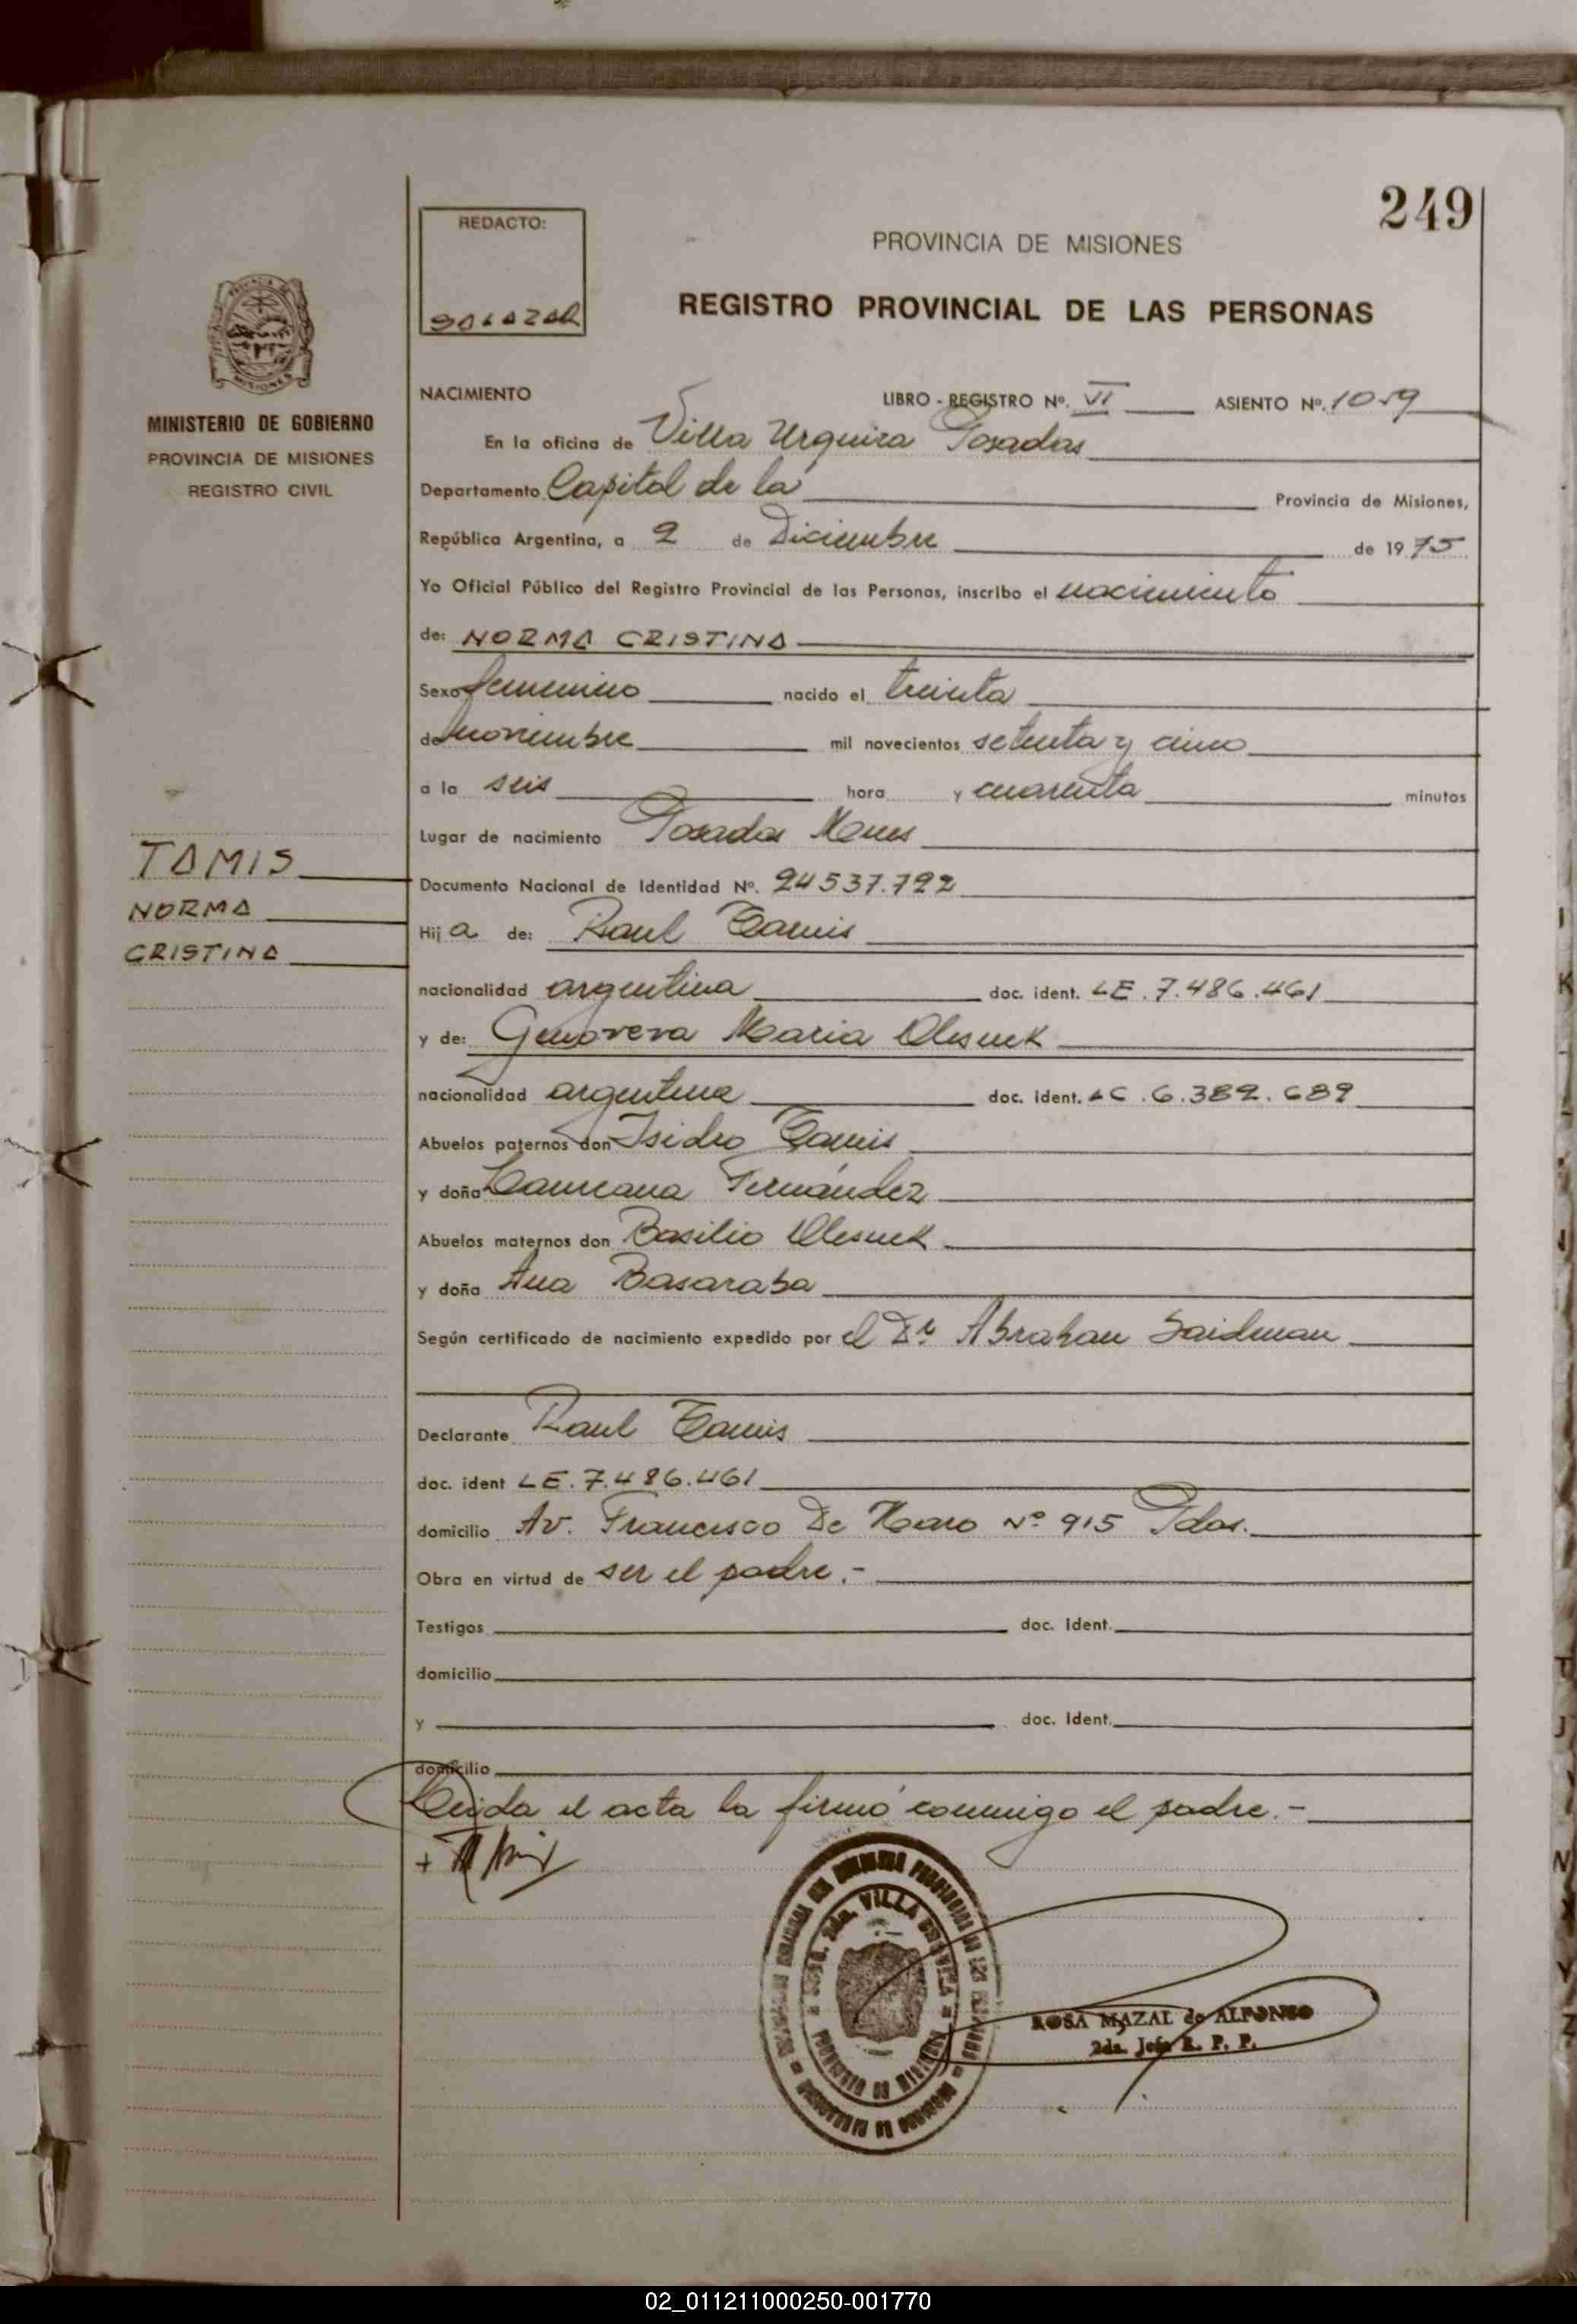 249
REDACTO:
SALAZAR
PROVINCIA DE MISIONES
REGISTRO PROVINCIAL DE LAS PERSONAS
MISIONES
MINISTERIO DE GOBIERNO
PROVINCIA DE MISIONES
REGISTRO CIVIL
NACIMIENTO LIBRO - REGISTRO Nº. VI ASIENTO Nº. 1059
En la oficina de Villa Urquiza Posadas
Departamento Capital de la Provincia de Misiones,
República Argentina, a 2 de Diciembre de 1975
Yo Oficial Público del Registro Provincial de las Personas, inscribo el nacimiento
de: NORMA CRISTINA
Sexo femenino nacido el treinta
de noviembre mil novecientos setenta y cinco
a la seis hora y cuarenta minutos
Lugar de nacimiento Posadas Mnes
TAMIS
NORMA
CRISTINA
Documento Nacional de Identidad Nº. 24537.792
Hij a de: Raul Tamis
nacionalidad argentina doc. ident. LE. 7.486.461
y de: Genoveva Maria Olesnek
nacionalidad argentina doc. ident. LC. 6.382.689
Abuelos paternos don Isidro Tamis
y doña Laureana Fernández
Abuelos maternos don Basilio Olesnek
y doña Ana Basaraba
Según certificado de nacimiento expedido por el Dr Abrahan Saidman
Declarante Raul Tamis
doc. ident LE. 7.486.461
domicilio Av. Francisco De Haro Nº 915 Pdas.
Obra en virtud de ser el padre.-
Testigos doc. ident.
domicilio
y doc. ident.
domicilio
Leida el acta la firmó conmigo el padre.-
2da. VILLA URQUIZA
PROVINCIA DE MISIONES
ROSA MAZAL de ALFONSO
2da. Jefe R. P. P.
02_011211000250-001770